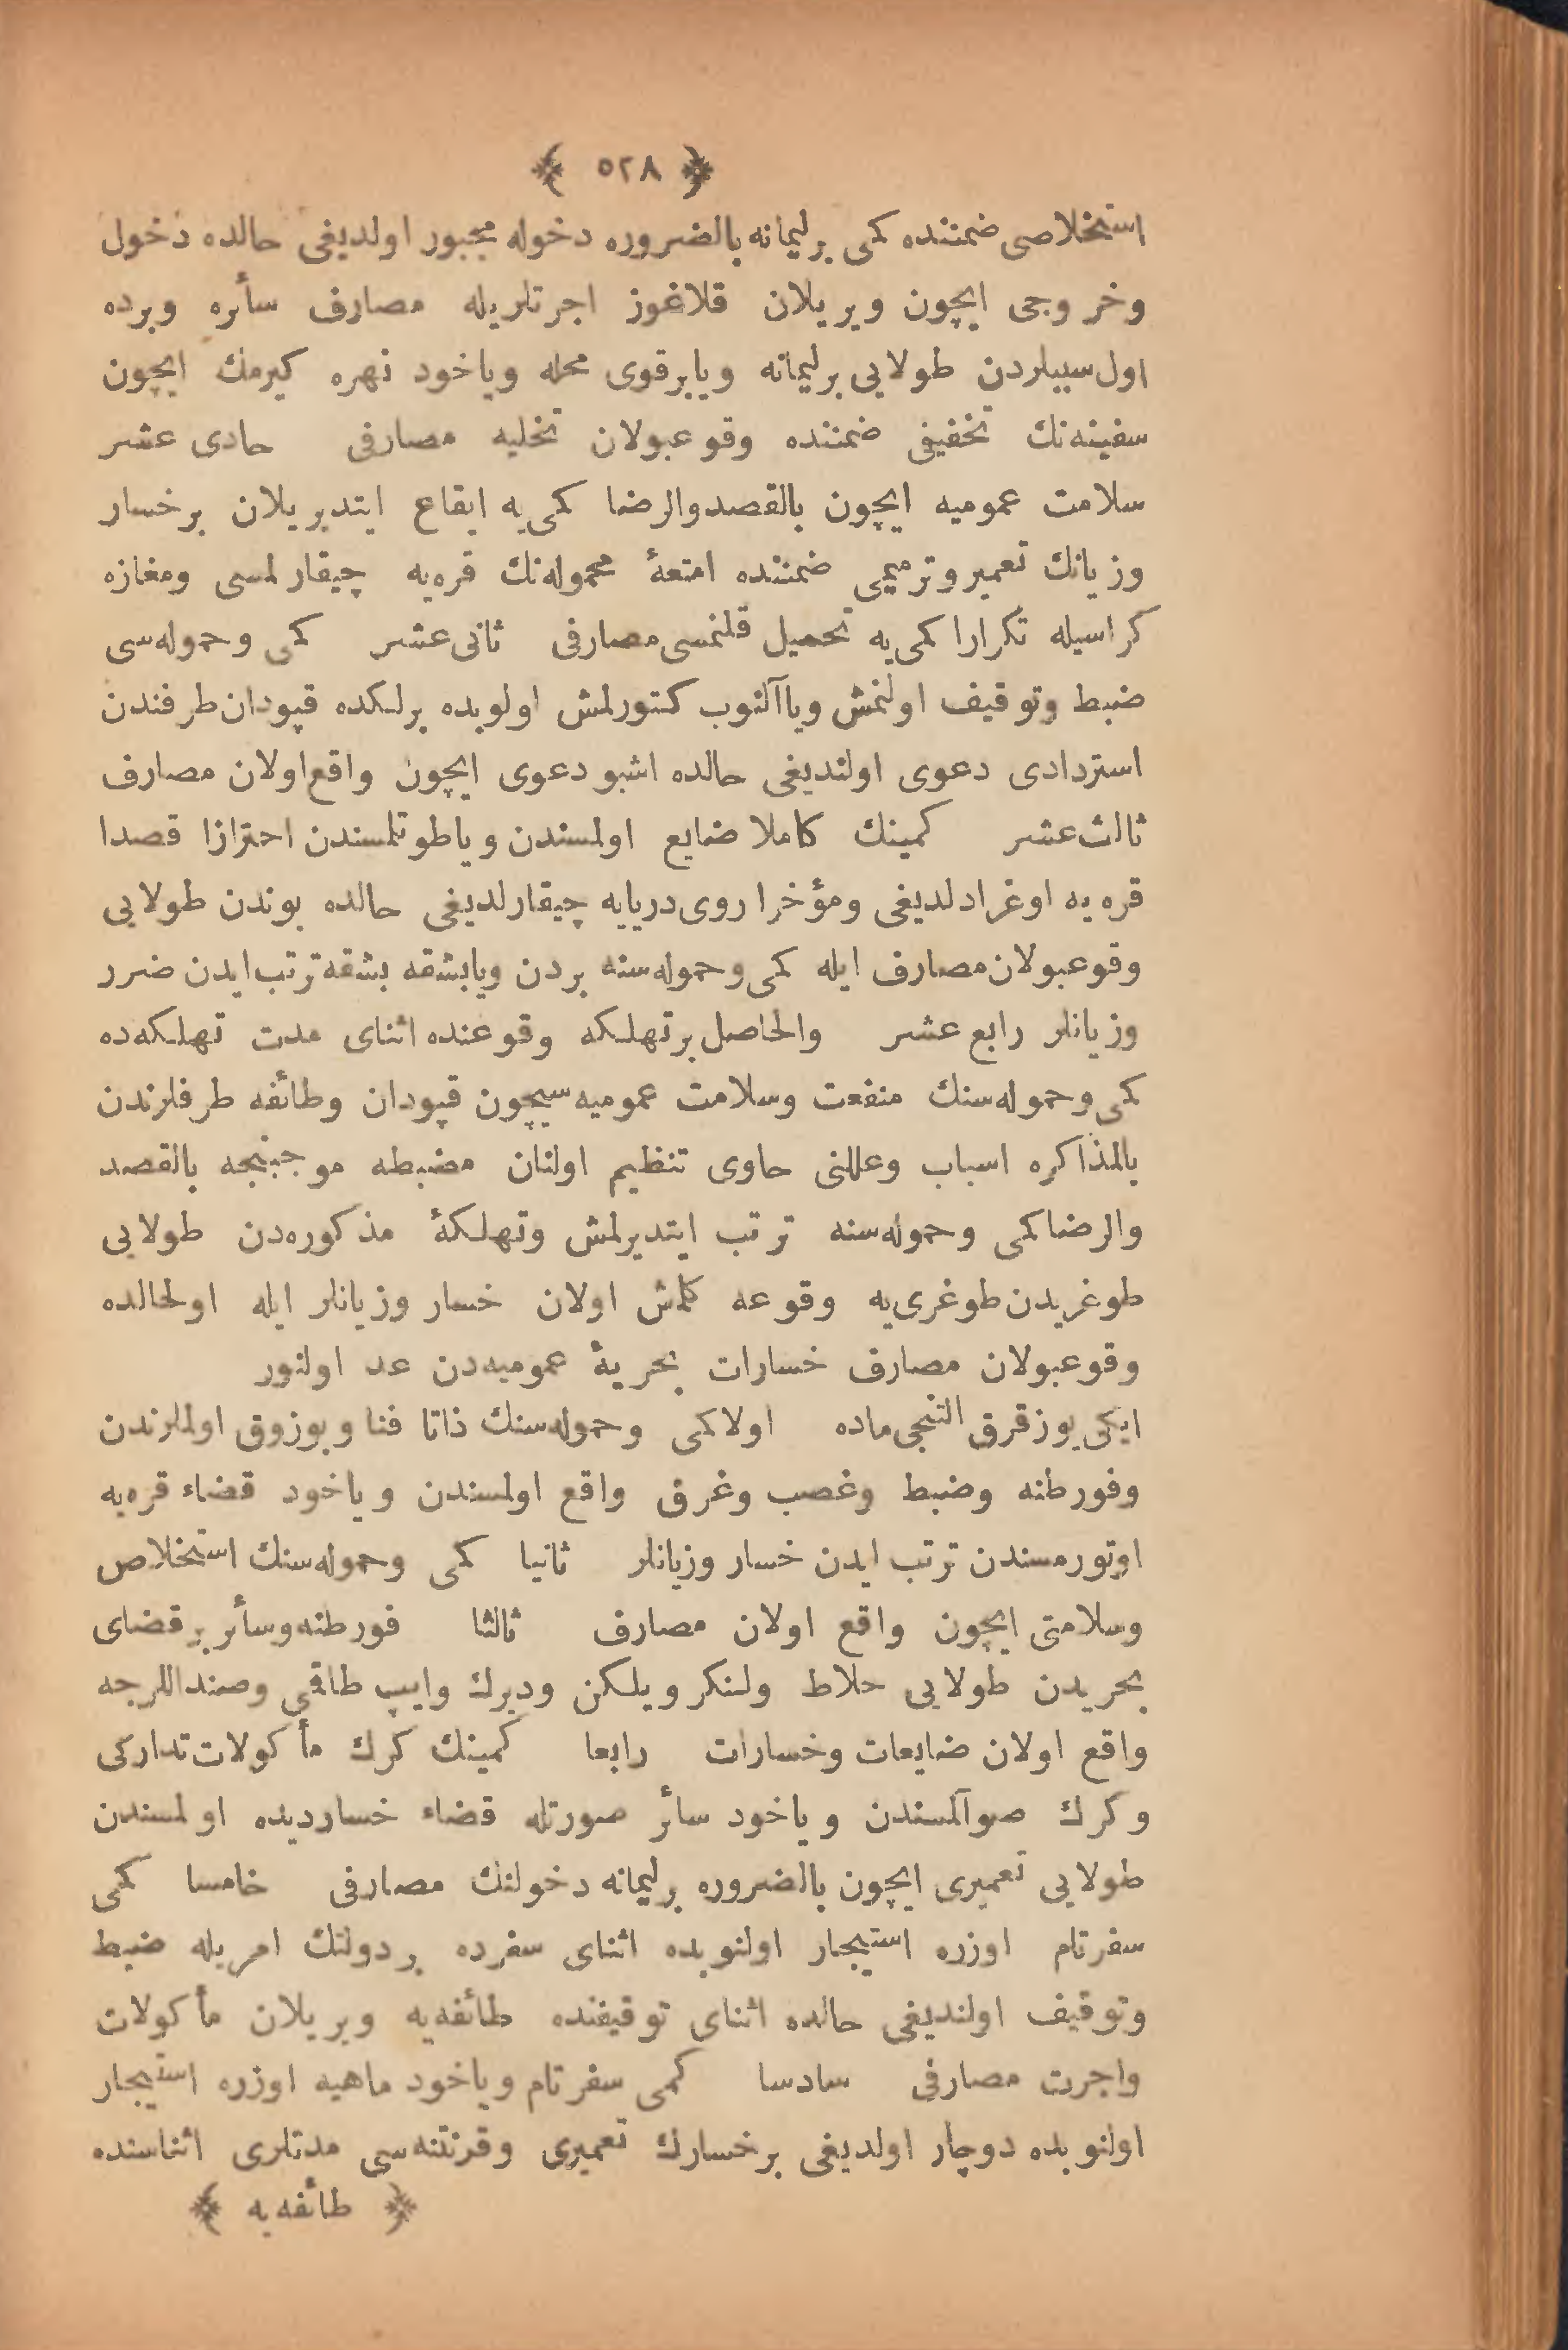 ﴿ ٥٢٨ ﴾
استخلاصی ضمننده کمی برلیمانه بالضروره دخوله مجبور اولدیغی حالده دخول
وخروجی ایچون ویریلان قلاغوز اجرتلریله مصارف سأره وبرده
اول سببلردن طولایی برلیمانه ویابرقوی محله ویاخود نهره کیرمك ایچون
سفینه‌نك تخفیفی ضمننده وقوعبولان تخلیه مصارفی حادی عشر
سلامت عمومیه ایچون بالقصد والرضا کمی‌یه ایقاع ایتدیریلان برخسار
وزیانك تعمیر وترمیمی ضمننده امتعهٔ محموله‌نك قره‌یه چیقارلمسی ومغازه
کراسیله تکرارا کمی‌یه تحمیل قلنمسی مصارفی ثانی عشر کمی وحموله‌سی
ضبط وتوقیف اولنمش ویاآلنوب کتورلمش اولوبده برلکده قپودان طرفندن
استردادی دعوی اولندیغی حالده اشبو دعوی ایچون واقع اولان مصارف
ثالث عشر کمینك کاملا ضایع اولمسندن ویاطوتلمسندن احترازا قصدا
قره‌یه اوغرادلدیغی ومؤخرا روی دریایه چیقارلدیغی حالده بوندن طولایی
وقوعبولان مصارف ایله کمی وحموله‌سنه بردن ویابشقه بشقه ترتب ایدن ضرر
وزیانلر رابع عشر والحاصل برتهلکه وقوعنده اثنای مدت تهلکه‌ده
کمی وحموله‌سنك منفعت وسلامت عمومیه‌سیچون قپودان وطائفه طرفلرندن
بالمذاکره اسباب وعللنی حاوی تنظیم اولنان مضبطه موجبنجه بالقصد
والرضا کمی وحموله‌سنه ترتب ایتدیرلمش وتهلکهٔ مذکوره‌دن طولایی
طوغریدن طوغری‌یه وقوعه کلمش اولان خسار وزیانلر ایله اولحالده
وقوعبولان مصارف خسارات بحریهٔ عمومیه‌دن عد اولنور
ایکی یوز قرق التنجی ماده اولا کمی وحموله‌سنك ذاتا فنا وبوزوق اولملرندن
وفورطنه وضبط وغصب وغرق واقع اولمسندن ویاخود قضاء قره‌یه
اوتورمسندن ترتب ایدن خسار وزیانلر ثانیا کمی وحموله‌سنك استخلاص
وسلامتی ایچون واقع اولان مصارف ثالثا فورطنه وسأر برقضای
بحریدن طولایی حلاط ولنکر ویلکن ودیرك وایپ طاقمی وصنداللرجه
واقع اولان ضایعات وخسارات رابعا کمینك کرك مأکولات تدارکی
وکرك صوآلمسندن ویاخود سأر صورتله قضاء خساردیده اولمسندن
طولایی تعمیری ایچون بالضروره برلیمانه دخولنك مصارفی خامسا کمی
سفرتام اوزره استیجار اولنوبده اثنای سفرده بردولتك امریله ضبط
وتوقیف اولندیغی حالده اثنای توقیفنده طائفه‌یه ویریلان مأکولات
واجرت مصارفی سادسا کمی سفرتام ویاخود ماهیه اوزره استیجار
اولنوبده دوچار اولدیغی برخسارك تعمیری وقرنتنه‌سی مدتلری اثناسنده
﴿ طائفه‌یه ﴾